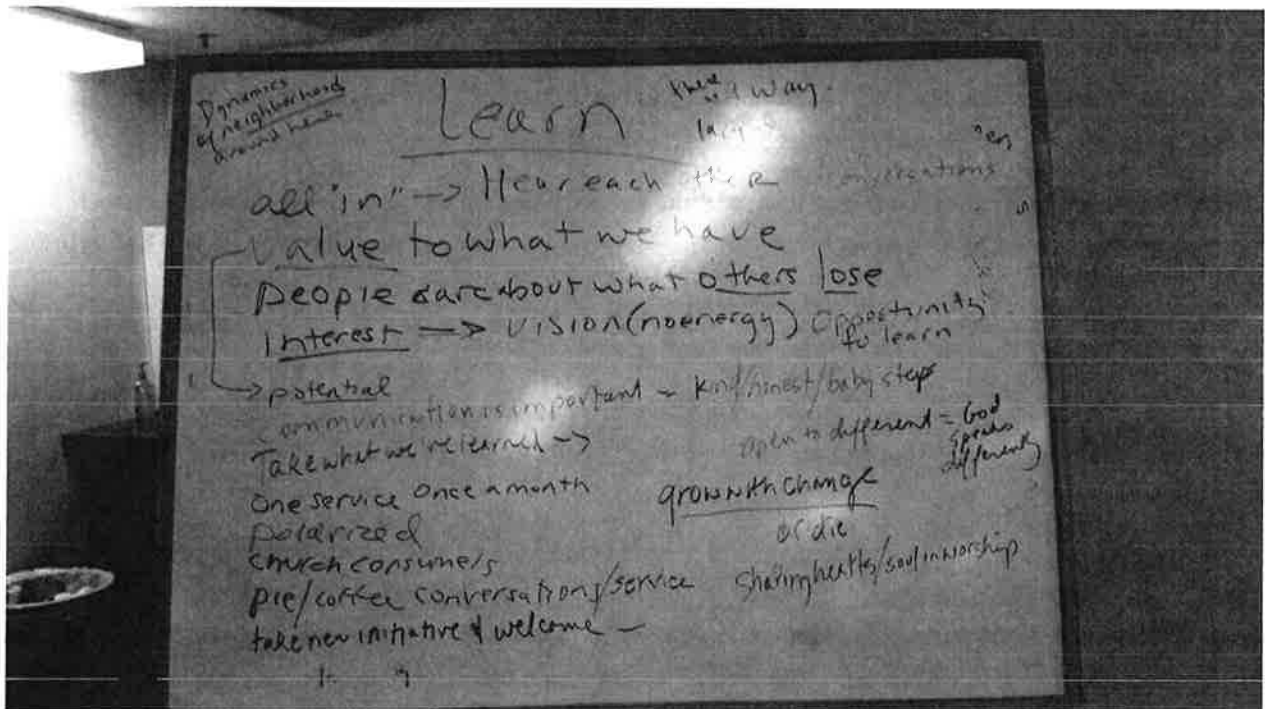 Dynamics
of neighborhoods
around here
Learn
there is a way.
all "in" -> Hear each other conversations
value to what we have
people care about what others lose
Interest -> vision (no energy) opportunity
to learn
-> potential
Communication is important - kind/honest/baby steps
Take what we've learned ->
open to different = God
speaks
differently
one service once a month
grow with change
or die
polarized
church consumers
pie/coffee conversations/service
sharing hearts/soul in worship
take new initiative & welcome -